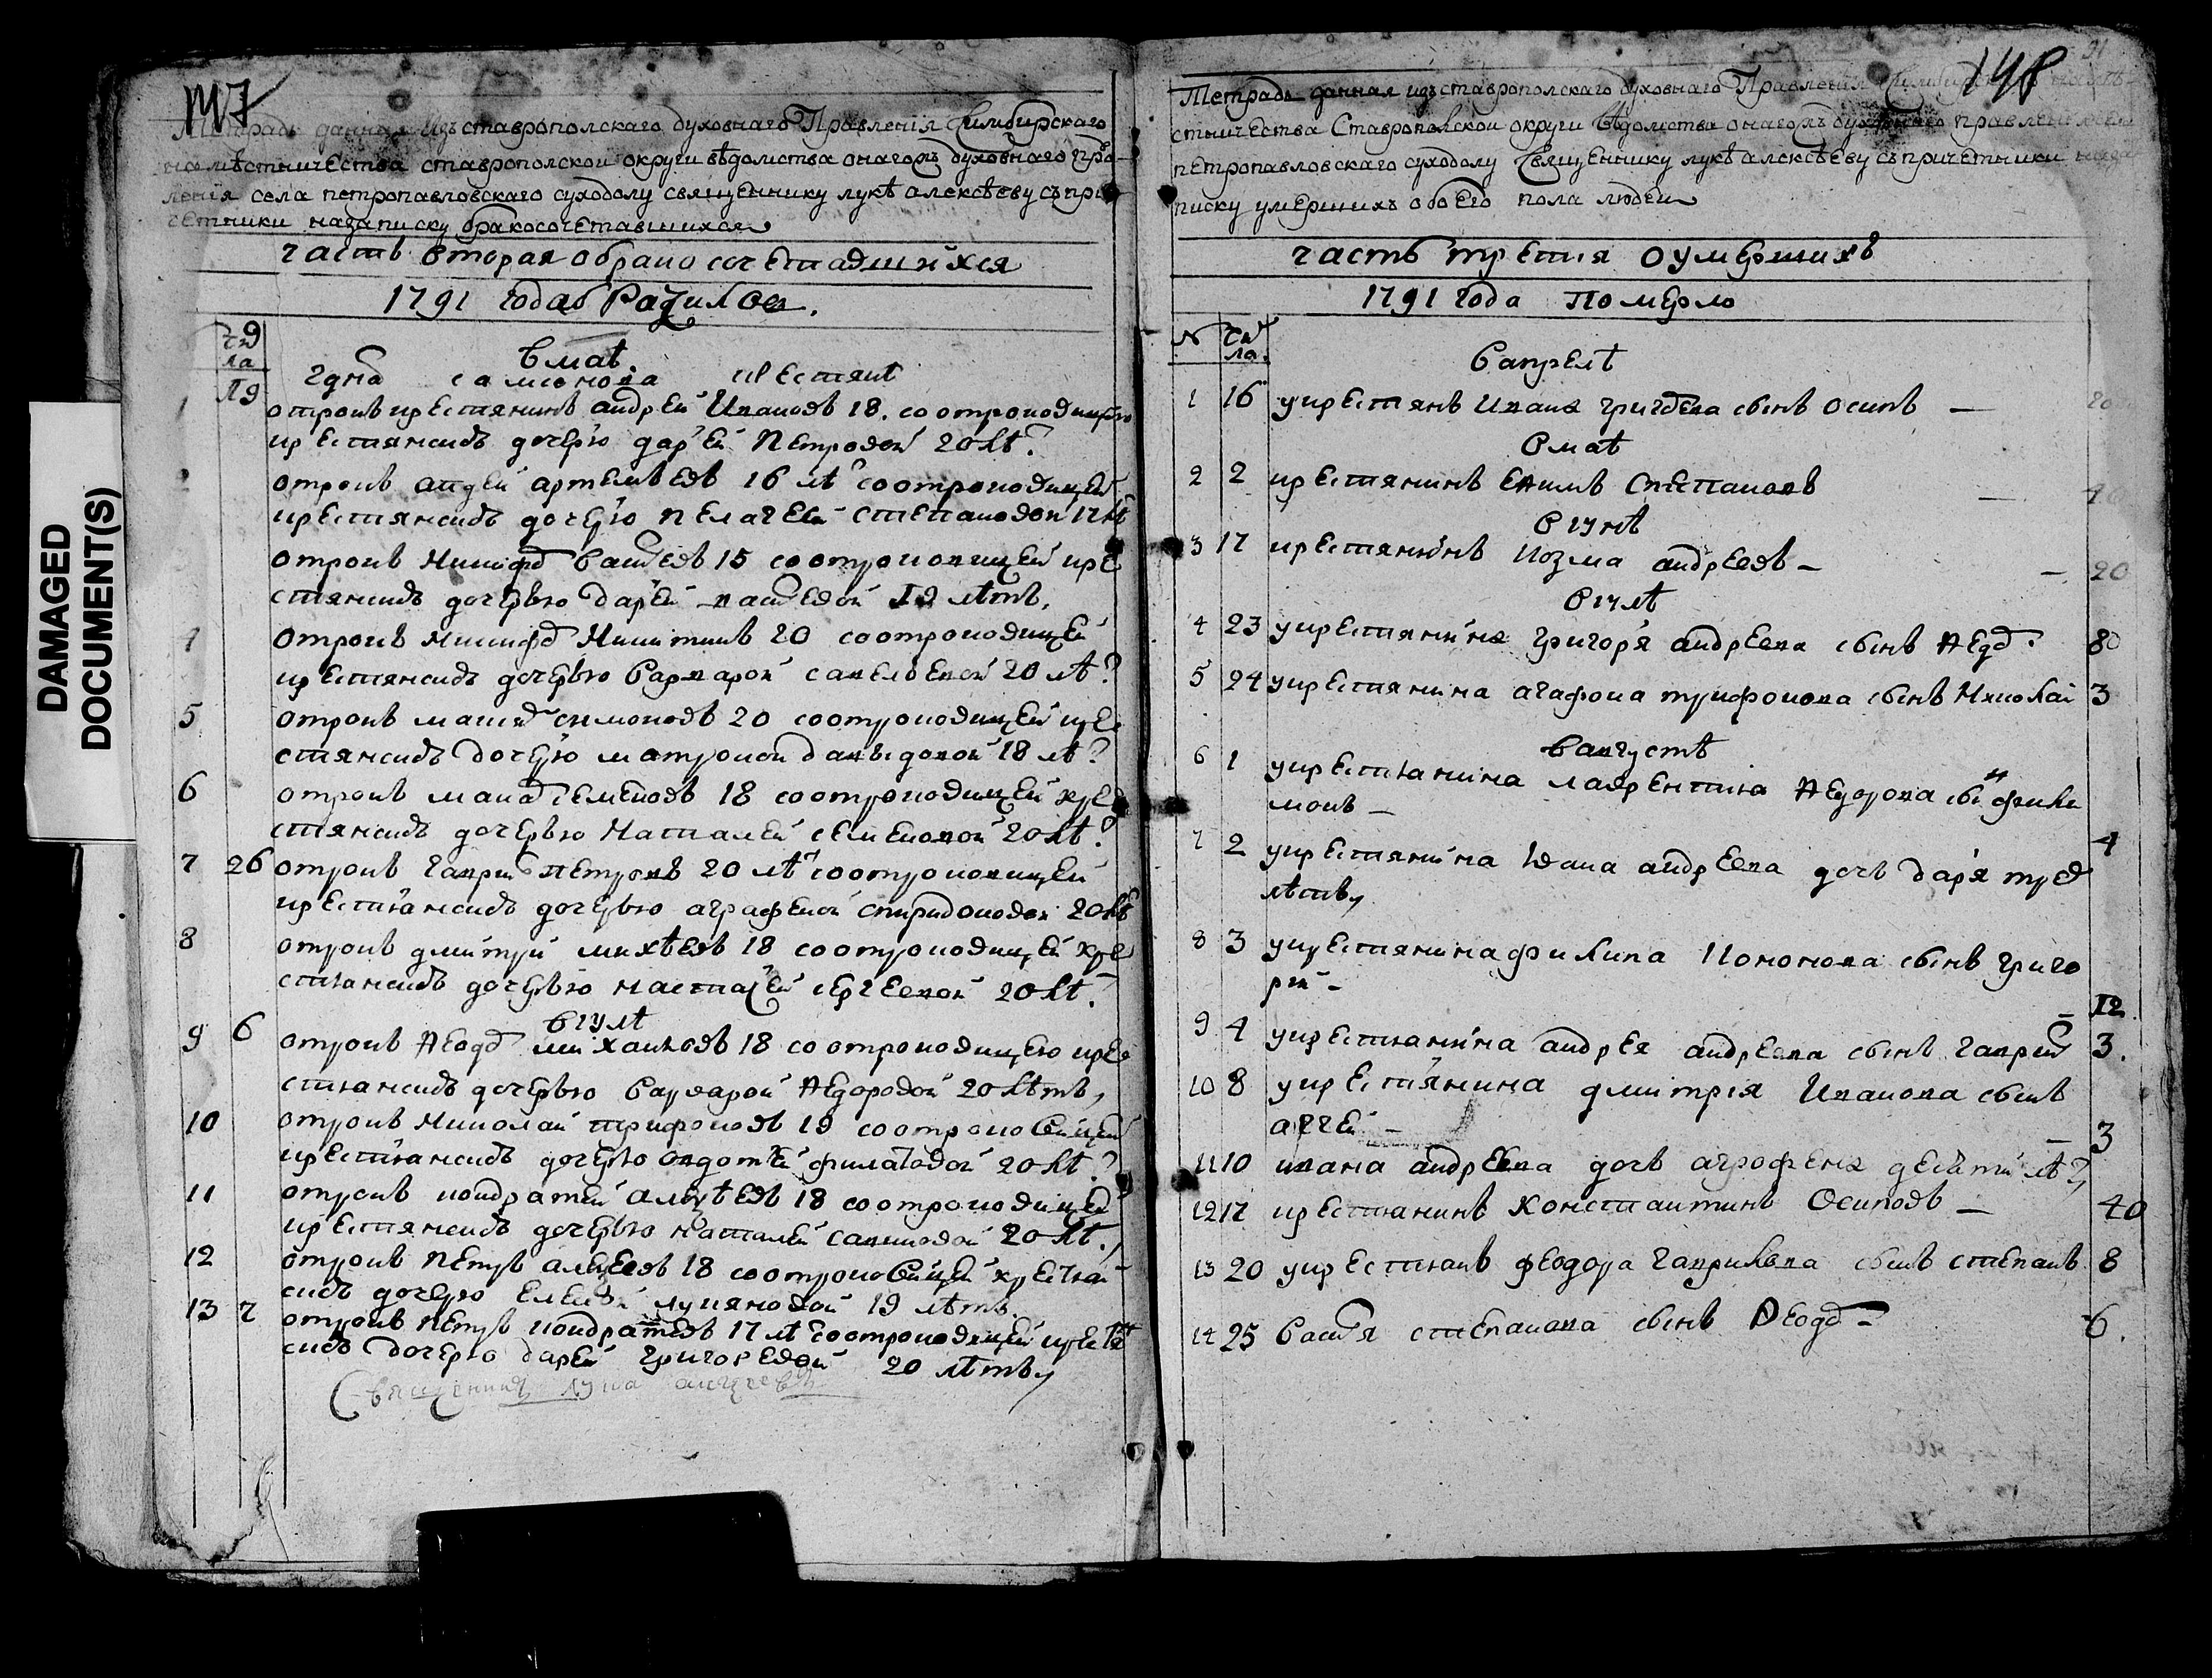 DAMAGED
DOCUMENT(S)
147
Тетрадь данная изъ ставрополскаго духовнаго Правленія Симбирскаго
намѣстничества ставрополскои округи вѣдомства онагожъ духовнаго пра
вленія села петропавловскаго суходолу священнику лукѣ алексѣеву съ при
четники на записку бракосочетавшихся
часть вторая о бракосочетавшихся
1791 года
чи
сла
в маѣ
гдна самсонова крестянъ
1
отрокъ крестянинъ андрей Ивановъ 18. со отроковицею
крестянскъ дочерю дарʼей Петровой 20 лѣ
отрокъ андрей артемьевъ 16 лѣ со отроковицей
крестянскъ дочерю пелагеей степановой 17 лѣ
отрокъ 15 со отроковицей кре
стянскъ дочерью дарʼей 19 лѣтъ,
4 отрокъ Никитинъ 20 со отроковицей
крестянскъ дочерью варварой савельевой 20 лѣ
5 отрокъ симоновъ 20 со отроковицей кре
стянскъ дочерю матроной давыдовой 18 лѣ
6 отрокъ семеновъ 18 со отроковицей кре
стянскъ дочерью Наталей семеновой 20 лѣ
7 26 отрокъ гаври петровъ 20 лѣ со отроковицей
крестьянскъ дочерью аграфеной спиридоновой 20 лѣ
8 отрокъ дмитри михѣевъ 18 со отроковицей кре
стьянскъ дочерью настасʼей сергеевой 20 лѣ
в іулѣ
9 6 отрокъ Ѳеод михаиловъ 18 со отроковицею кре
стьянскъ дочерью варварой Ѳедоровой 20 лѣтъ,
10 отрокъ Николаи трифоновъ 19 со отроковицей
крестьянскъ дочерью авдотьей филатовой 20 лѣ
11 отрокъ кондратей алексѣевъ 18 со отроковицей
крестянскъ дочерью наталей савиновой 20 лѣ.
12 отрокъ петръ алексеевъ 18 со отроковицей крестьян
скъ дочерю еленой лукяновой 19 лѣтъ.
13 7 отрокъ петръ кондратевъ 17 лѣ со отроковицей крестя
скъ дочерю дарей григоревой 20 лѣтъ,
Священникъ лука алексѣевъ
148
91
Тетрадь данная изъ ставрополскаго духовнаго Правленія
стничества Ставрополскои округи вѣдомства онагожъ духовнаго правленія села
петропавловскаго суходолу Священнику лукѣ алексѣеву съ причетники на за
писку умершихъ обоего пола людеи
часть третия о умершихъ
1791 года померло
№ чи
сла
в апрелѣ
1 16 у крестянъ Ивана григорева сынъ осипъ —
в маѣ
2 2 крестянинъ Степановъ —
в іунѣ
3 17 крестянинъ козма андреевъ — — 20
в іулѣ
4 23 у крестянина григорʼя андреева сынъ Ѳед 80
5 24 у крестянина агафона трифонова сынъ Николаи 3
в августѣ
6 1 у крестьянина лаврентия Ѳедорова сы фили
монъ — 4
7 2 у крестянина Ивана андреева дочь дарʼя трех
лѣтъ,
8 3 у крестянина филипа кононова сынъ григо
рій — — 12
9 4 у крестьянина андрея андреева сынъ гаври 3.
10 8 у крестʼянина дмитрія Иванова сынъ
— 3
11 10 ивана андреева дочь аграфена десяти лѣ,
12 17 крестьянинъ константинъ Осиповъ — 40
13 20 у крестьянъ феодора гаврилова сынъ степанъ 8
14 25 Васил я степанова сынъ Ѳеод 6.